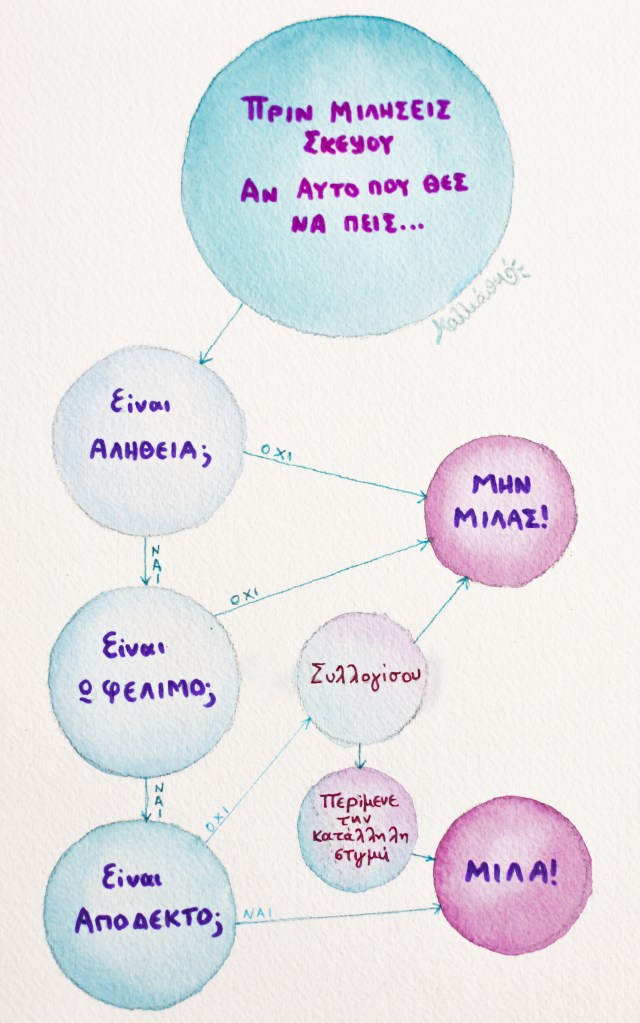 ΠΡΙΝ ΜΙΛΗΣΕΙΣ
ΣΚΕΨΟΥ
ΑΝ ΑΥΤΟ ΠΟΥ ΘΕΣ
ΝΑ ΠΕΙΣ...
Είναι
ΑΛΗΘΕΙΑ;
ΟΧΙ
ΜΗΝ
ΜΙΛΑΣ!
ΝΑΙ
Είναι
ΩΦΕΛΙΜΟ;
ΟΧΙ
Συλλογίσου
ΝΑΙ
ΟΧΙ
Περίμενε
την
κατάλληλη
στιγμή
Είναι
ΑΠΟΔΕΚΤΟ;
ΝΑΙ
ΜΙΛΑ!